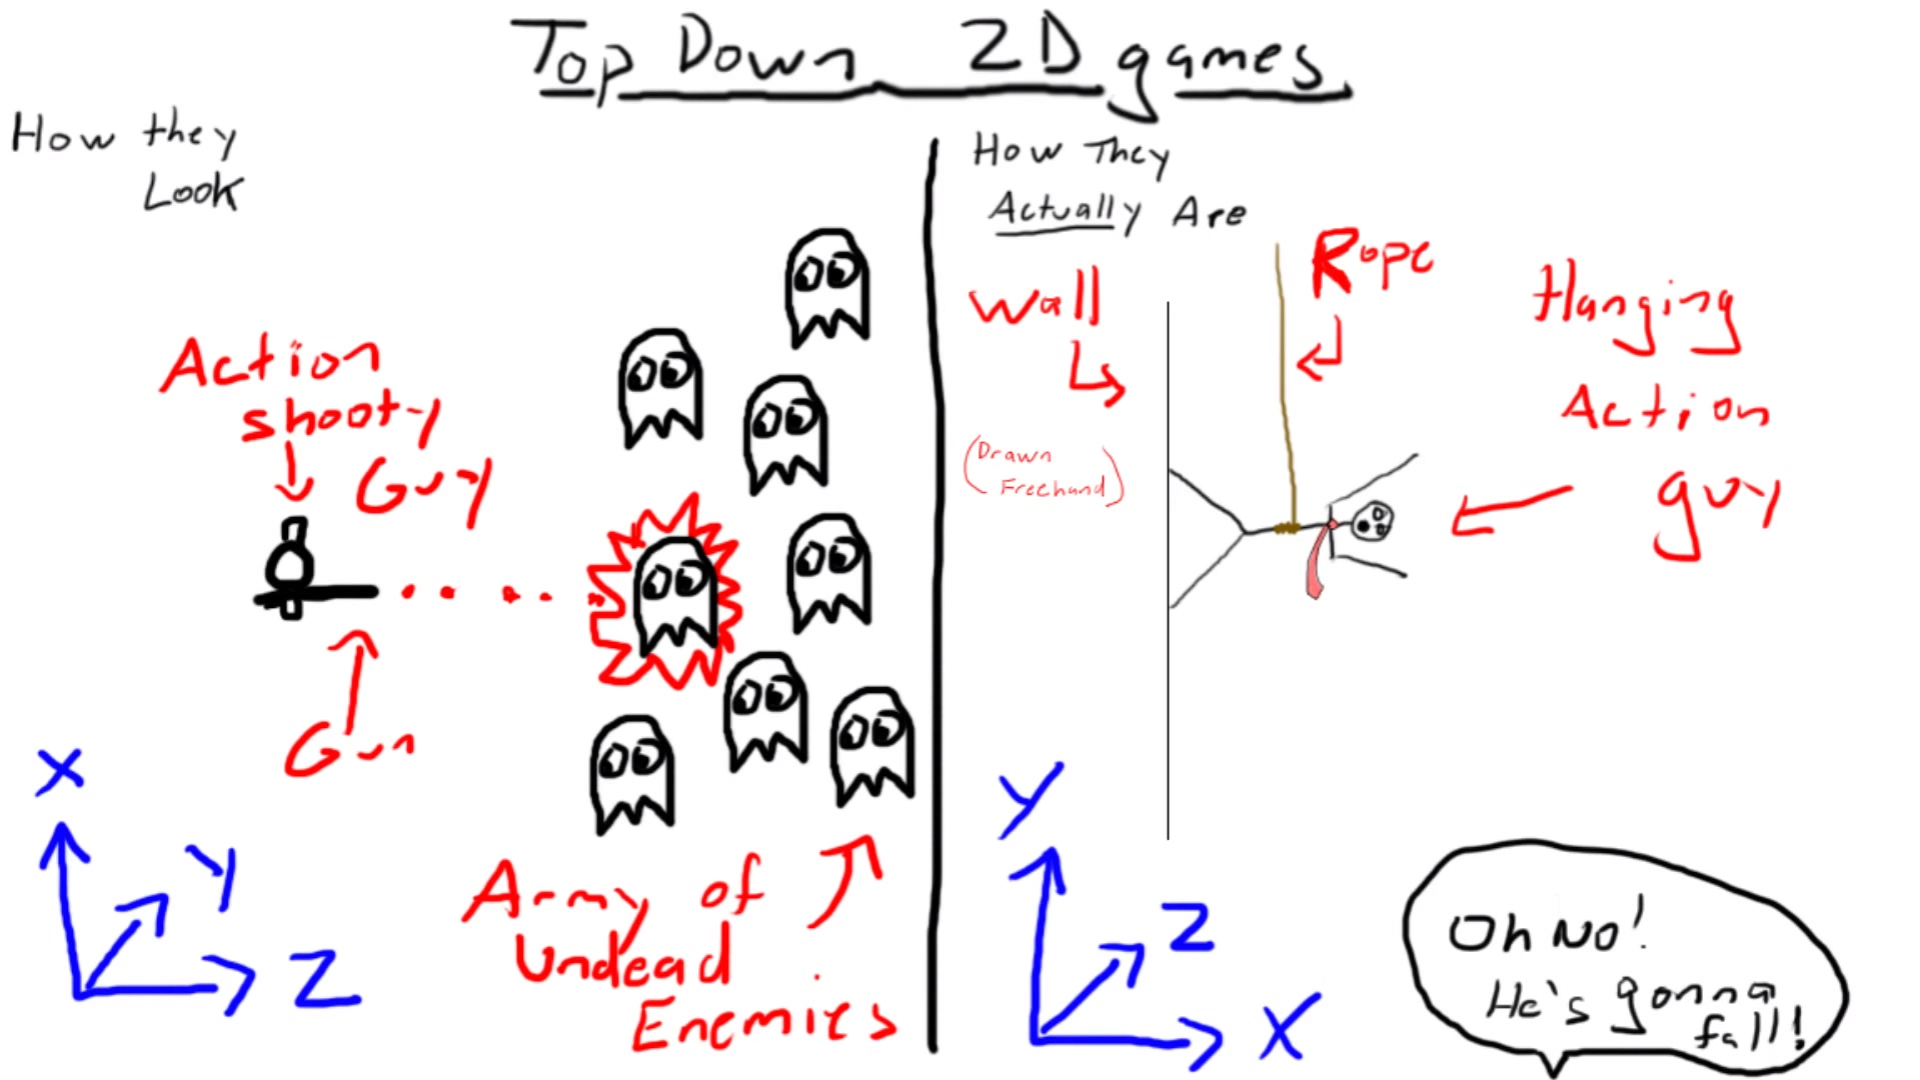 Top Down 2D games
How they
Look
Action
shooty
Guy
Gun
Army of
Undead
Enemies
X
Y
Z
How They
Actually Are
Wall
(Drawn
Freehand)
Rope
Hanging
Action
guy
Y
Z
X
Oh No!
He's gonna
fall!